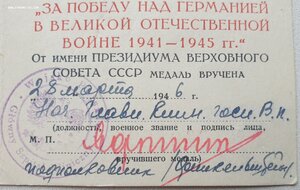 "ЗА ПОБЕДУ НАД ГЕРМАНИЕЙ
В ВЕЛИКОЙ ОТЕЧЕСТВЕННОЙ
ВОЙНЕ 1941—1945 гг."
От имени ПРЕЗИДИУМА ВЕРХОВНОГО
СОВЕТА СССР МЕДАЛЬ ВРУЧЕНА
28 марта 1946 г.
Нач. Главн. Клин. госп. В.п.
(должность, воинское звание и подпись лица,
М. П.
вручившего медаль)
подполковник